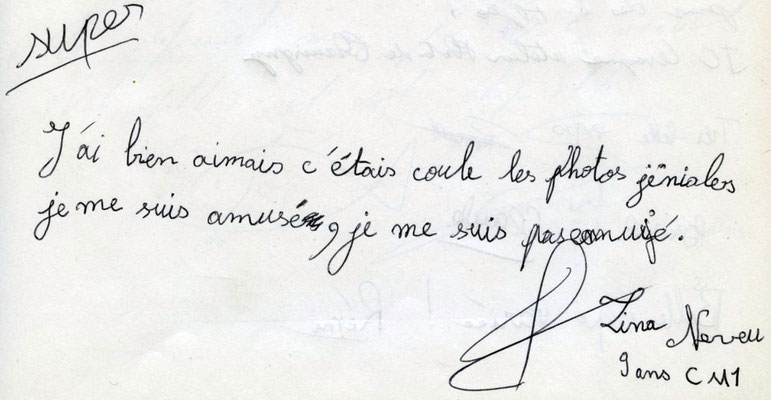 super
J'ai bien aimais c'étais coule les photos jéniales
je me suis amusé, je me suis pas
Lina
9 ans CM1